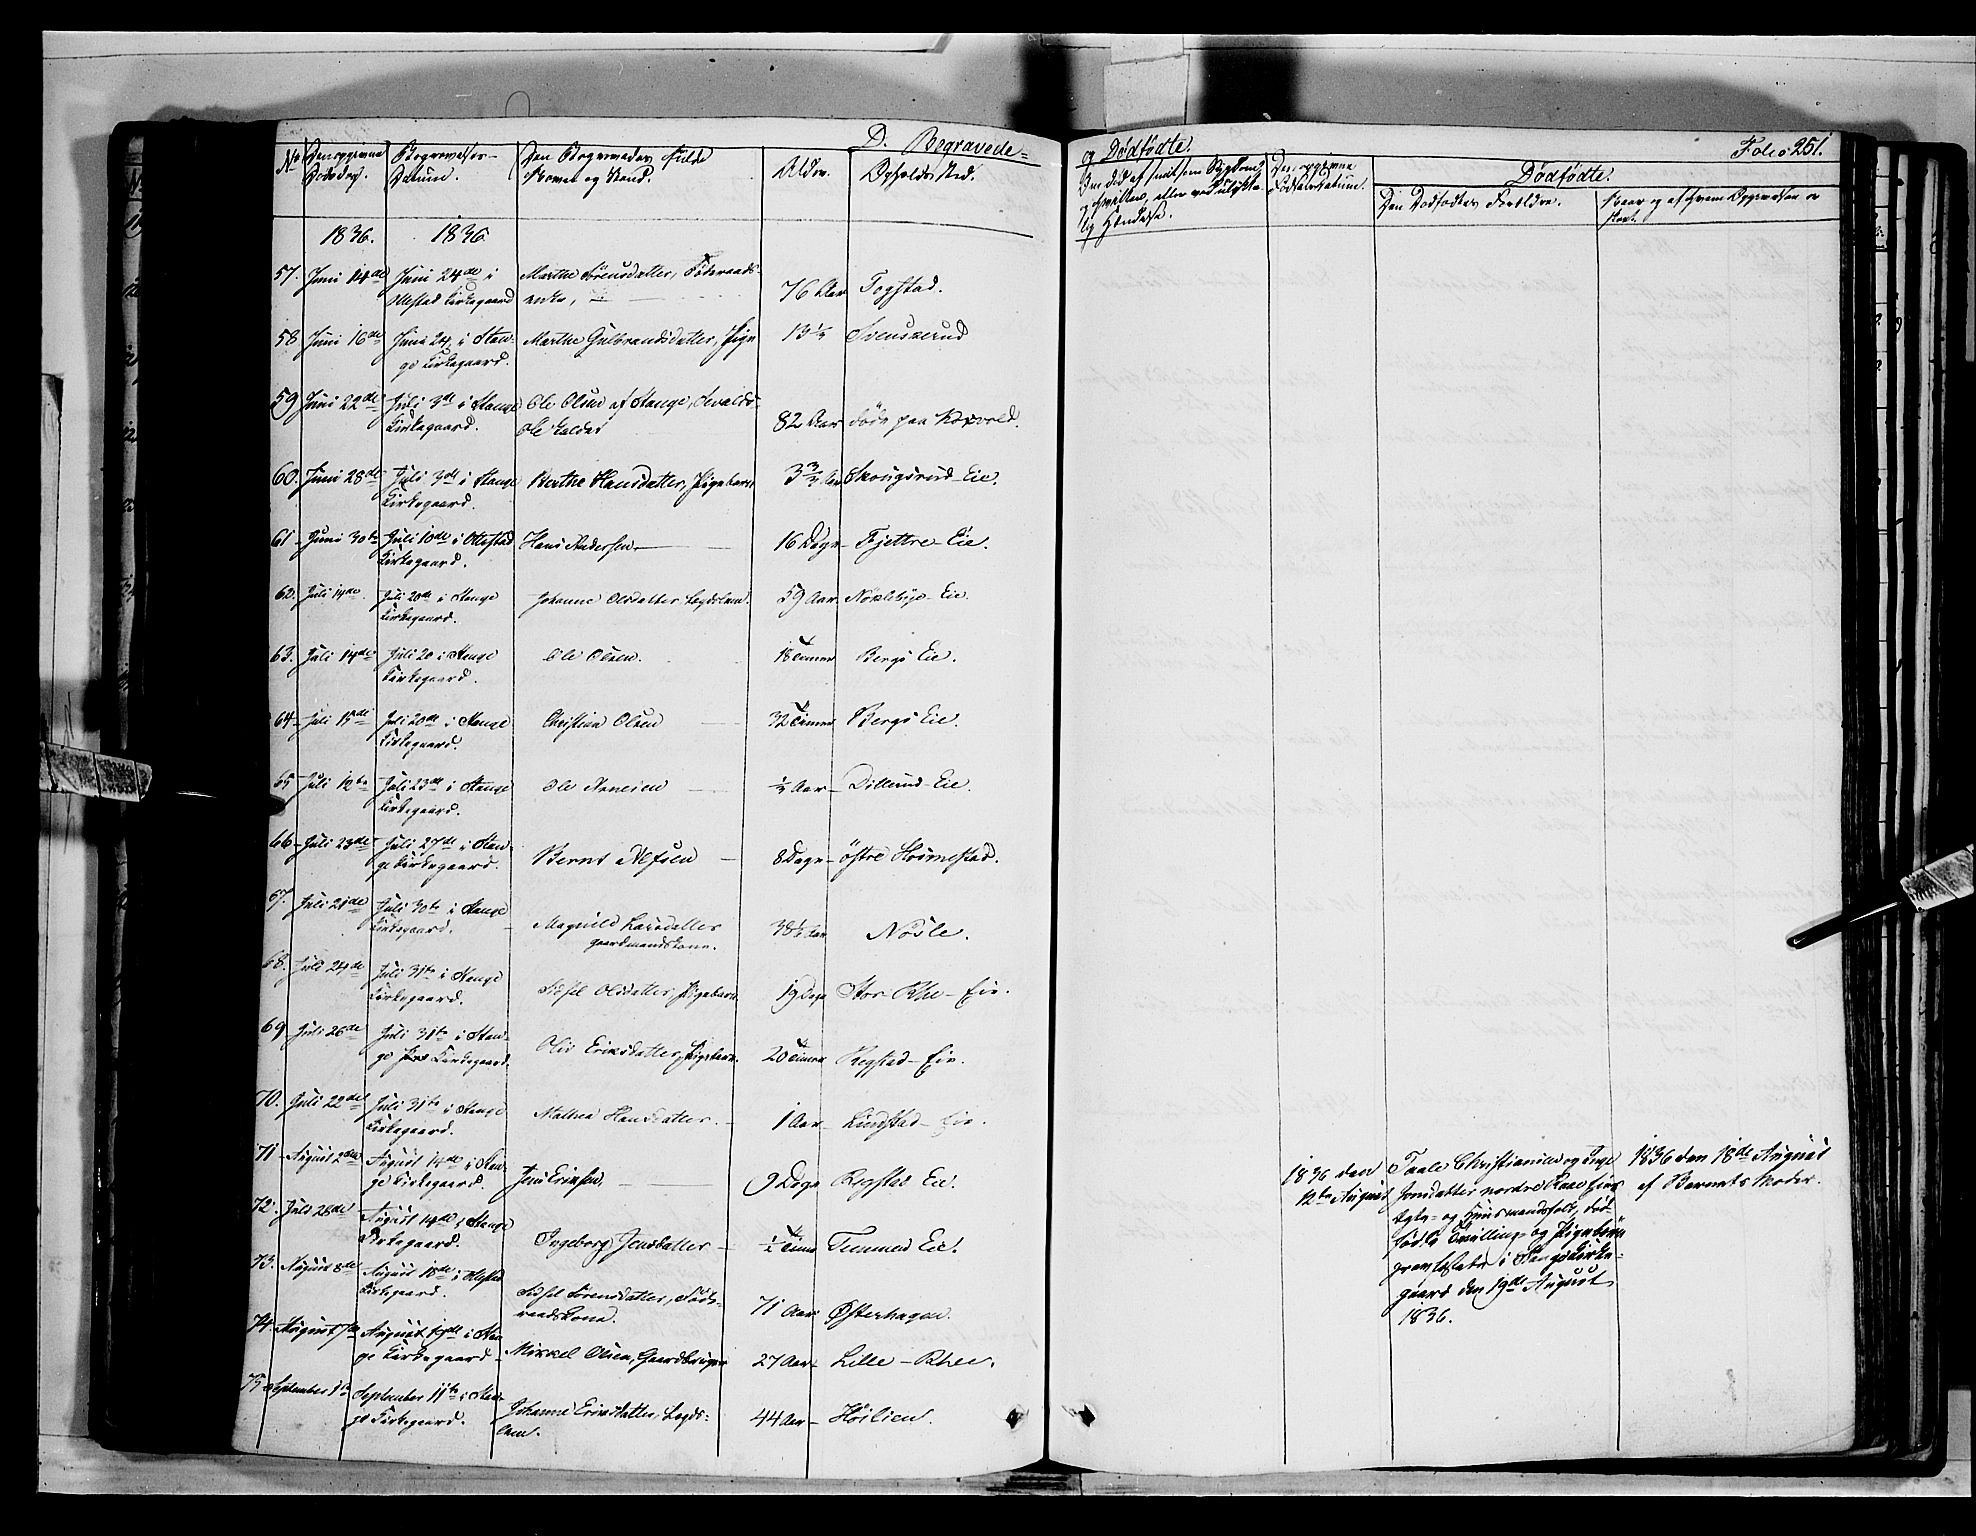 D. Begravede
og Dødfødte.
Folio 251.
No Den opgivne Dødsdag.
Begravelses-Datum.
Den Begravedes fulde Navn og Stand.
Alder.
Opholds Sted.
Den opgivne Fødselsdatum.
Dødfødte.
Den Dødfødtes Forældre.
Naar og af hvem Opgivelsen er skeet.
1836. 1836
57. Juni 14de Juni 24de i Ottestad Kirkegaard Marthe Sørensdatter, Føderaads-enke, 76 Aar Togstad.
58 Juni 16de Juni 24 i Stange Kirkegaard. Marthe Gulbrandsdatter, Pige 13 Svenskerud
59 Juni 22de Juli 3de i Stange Kirkegaard. Ole Olsen af Stange, Sevalds-Ole kaldet 82 Aar døde paa
60. Juni 28de Juli 3de i Stange Kirkegaard. Berthe Hansdatter, Pigebarn 3 Aar Skougsrud-Eie.
61 Juni 30te Juli 10de i Ottestad Kirkegaard. Hans Andersen 16 Dage Fjettre-Eie.
62. Juli 14de Juli 20de i Stange Kirkegaard. Johanne Olsdatter Lægdslem. 59 Aar Nøkleby-Eie.
63. Juli 14de Juli 20 i Stange Kirkegaard. Ole Olsen. 18 Timer Bergs Eie.
64 Juli 15de Juli 20de i Stange Kirkegaard. Christian Olsen 32 Timer Bergs Eie.
65 Juli 12te Juli 23de i Stange Kirkegaard. Ole Arnesen ½ Aar Dillerud-Eie.
66 Juli 23de Juli 27de i Stange Kirkegaard. Bernt 8 Dage østre
67. Juli 21de Juli 30te i Stange Kirkegaard. Magnild Larsdatter gaardmandskone. 38½ Aar Nøsle.
68. Juli 24de Juli 31te i Stange Kirkegaard. Sidsel Olsdatter, Pigebarn. 19 Dage Stor Rhe-Eie.
69 Juli 26de Juli 31te i Stange Kirkegaard. Olia Eriksdatter, Pigebarn. 20 Timer Regstad-Eie.
70. Juli 22de Juli 31te i Stange Kirkegaard. Mathea Hansdatter. 1 Aar Lindstad-Eie.
71 August 2den August 14de i Stange Kirkegaard. Jens Eriksen 9 Dage Regstad Eie.
72. Juli 28de August 14de i Stange Kirkegaard. Ingeborg Jensdatter ½ Time Tummen Eie.
73. August 8de August 18de i Ottestad Kirkegaard. Sidsel Sørensdatter, Føderaadskone. 71 Aar Østerhagen.
74. August August i Stange Kirkegaard Mikkel Olsen, Gaardbruger 27 Aar Lille-Rhee.
75 September September 11te i Stange Kirkegaard. Johanne Eriksdatter, Lægdslem. 44 Aar Høilien.
1836 den 12te August
Taale Christiansen og Inge
Jonsdatter nordre Raae Eies
Ægte- og Huusmandsfolk, død-
fødte Tvilling- og Pigebørn
i Stange Kirke-
gaard den 19de August
1836.
1836 den 18de August
af Barnets Moder.